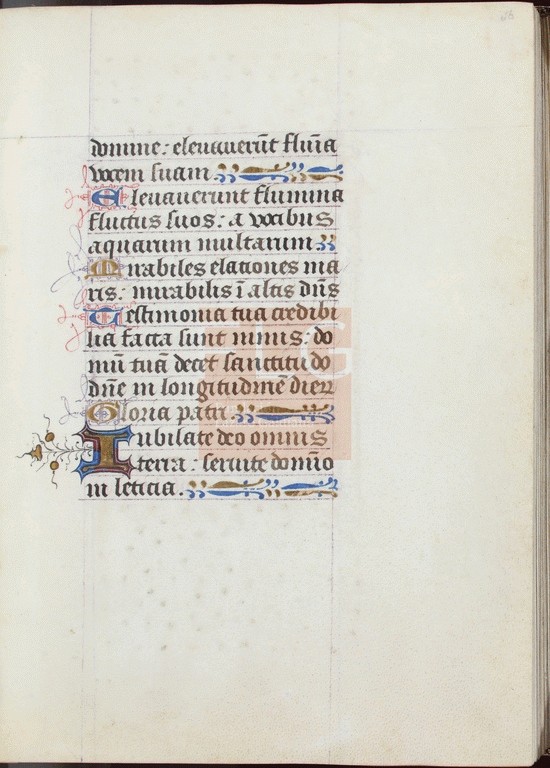 domine: eleuauerūt flūia
vocem suam.
Eleuauerunt flumina
fluctus suos: a vocibus
aquarum multarum
Mirabiles elationes ma
ris: mirabilis ī altis dn̄s
Testimonia tua credibi
lia facta sunt nimis: do
mū tuā decet sanctitudo
dn̄e in longitudinē dierꝝ
Gloria patri.
Iubilate deo omnis
terra: seruite domīo
in leticia.